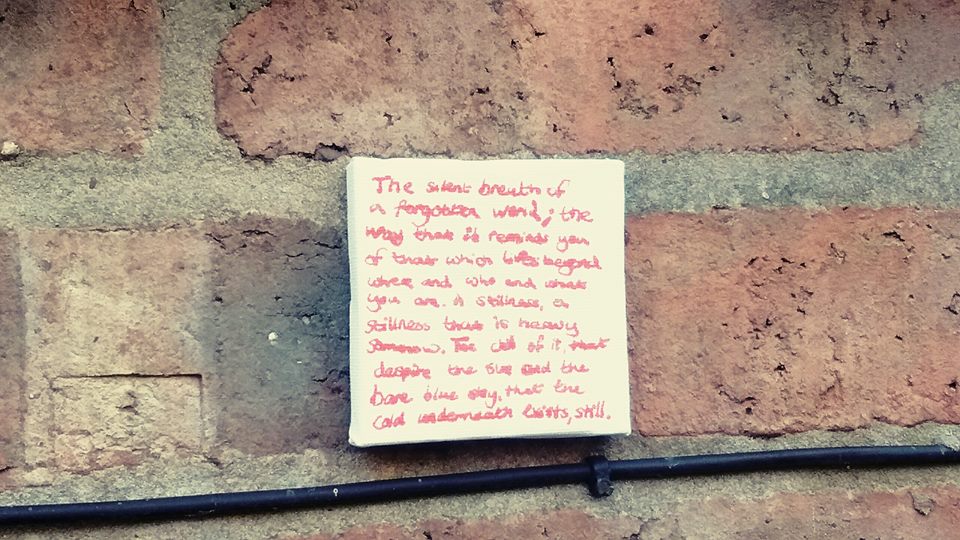 The silent breath of
a forgotten wind, the
way that it reminds you
of that which lies beyond
where and who and what
you are. A stillness, a
stillness that is heavy
somehow. The chill of it, that
despite the sun and the
bare blue sky, that the
cold underneath exists, still.